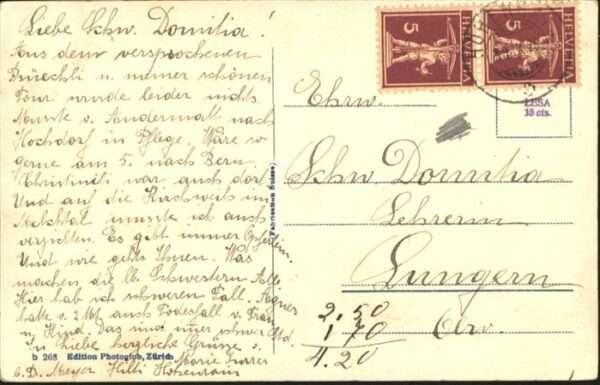 Liebe Schw. Domitia!
Aus dem versprochenen
Büüschli u. meiner schönen
Tour wurde leider nichts.
Musste v. Andermatt nach
Hochdorf in Pflege. Wäre so
gerne am 5. nach Bern.
Christinili war auch dort
Und auf die Kirchweih im
Melchtal musste ich auch
verzichten. Es gibt immer Opferlein.
Und wie gehts Ihnen. Was
machen die lb. Schwestern. Alli.
Hier hab ich schweren Fall. Agnes
hatte v. 2 Mt auch Todesfall v. Frau
u. Kind. Das sind immer schwer
liebe herzliche Grüsse v.
Marie Furrer
b 268 Edition Photoglob, Zürich
Meyer Hilti Hohenrain
Fabrication Suisse
HELVETIA
5
HELVETIA
5
LESA
15 cts.
Ehrw.
Schw Domitia
Lehrerin
Lungern
Obw.
2.50
1 70
4.20